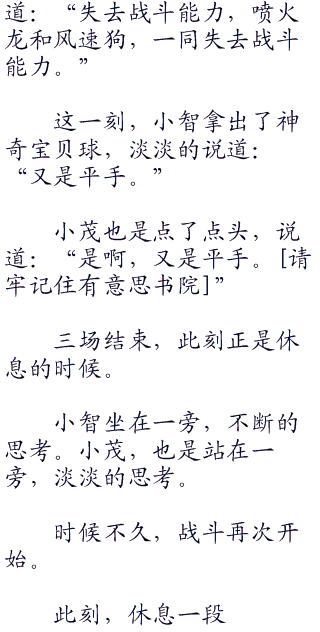 道：“失去战斗能力，喷火
龙和风速狗，一同失去战斗
能力。”
这一刻，小智拿出了神
奇宝贝球，淡淡的说道：
“又是平手。”
小茂也是点了点头，说
道：“是啊，又是平手。[请
牢记住有意思书院]”
三场结束，此刻正是休
息的时候。
小智坐在一旁，不断的
思考。小茂，也是站在一
旁，淡淡的思考。
时候不久，战斗再次开
始。
此刻，休息一段